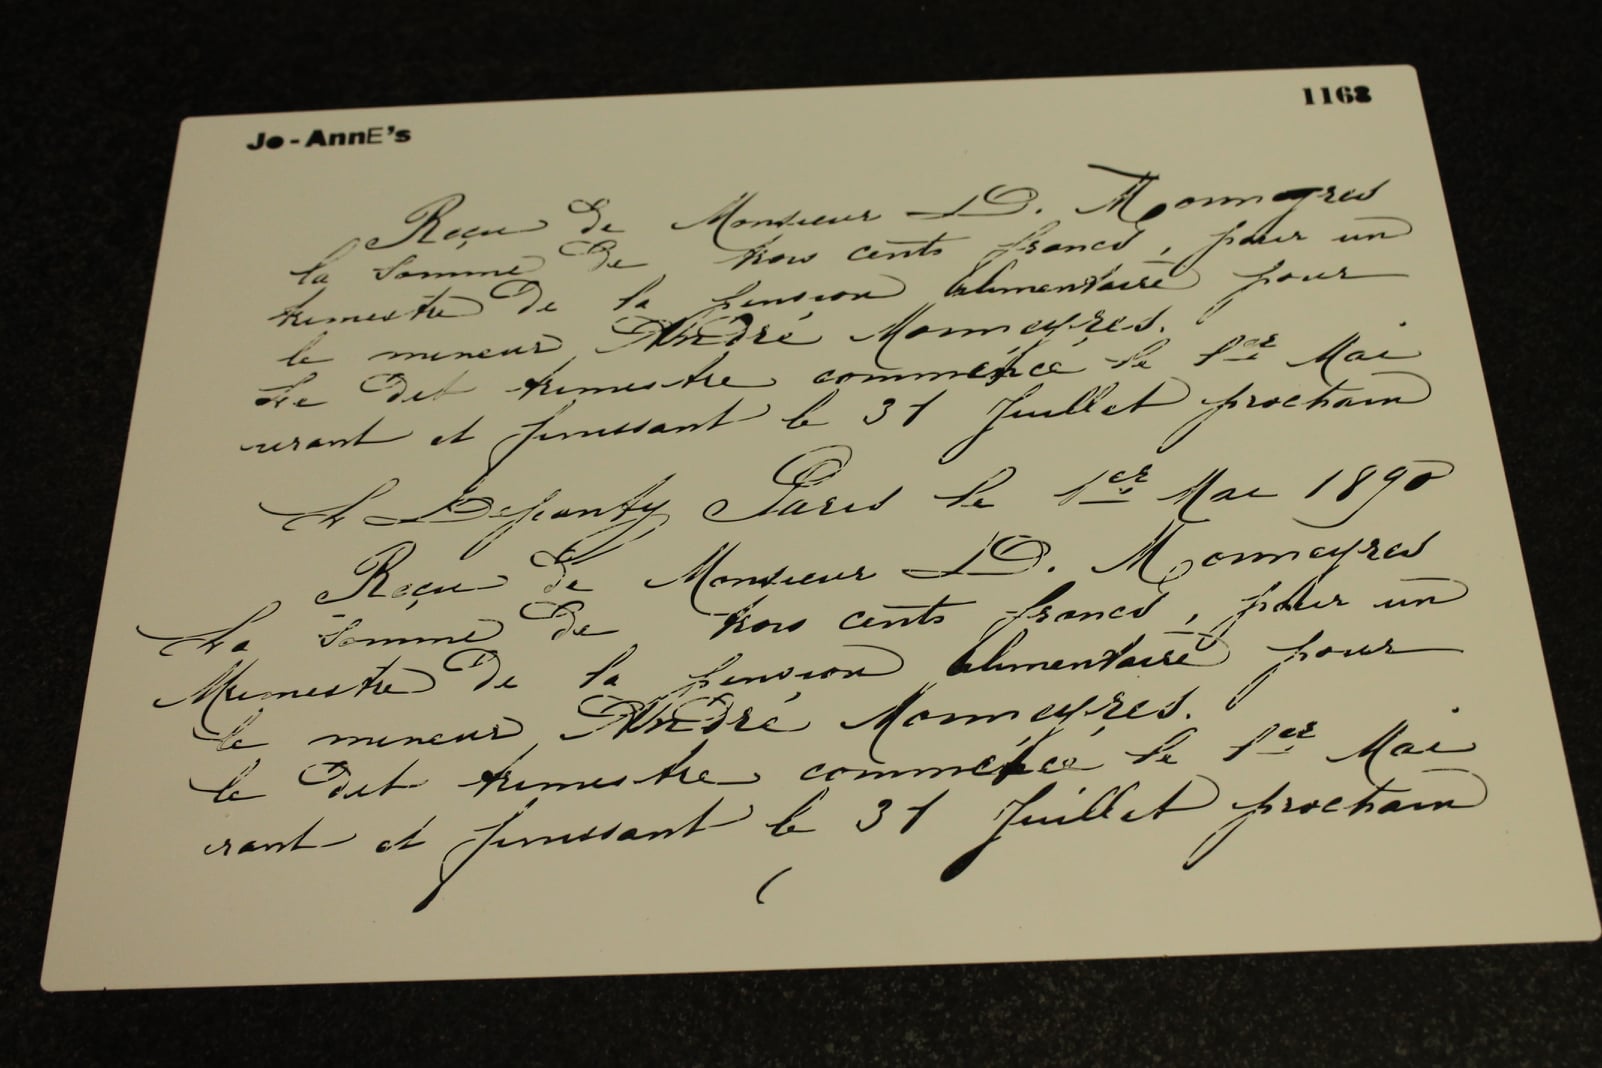 Jo-AnnE's
1168
Reçu de Monsieur D. Monneyres
la somme de trois cents francs, pour un
trimestre de la pension alimentaire pour
le mineur André Monneyres.
Le dit trimestre commencé le 1er Mai
urant et finissant le 31 Juillet prochain
Paris le 1er Mai 1890
Reçu de Monsieur D. Monneyres
la somme de trois cents francs, pour un
trimestre de la pension alimentaire pour
le mineur André Monneyres.
le dit trimestre commencé le 1er Mai
rant et finissant le 31 Juillet prochain